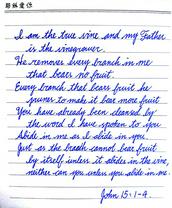 耶穌愛你
I am the true vine and my Father
is the vinegrower.
He removes every branch in me
that bears no fruit.
Every branch that bears fruit he
prunes to make it bear more fruit
You have already been cleansed by
the word I have spoken to you
Abide in me as I abide in you.
Just as the branch cannot bear fruit
by itself unless it abides in the vine,
neither can you unless you abide in me.
John 15:1-4.